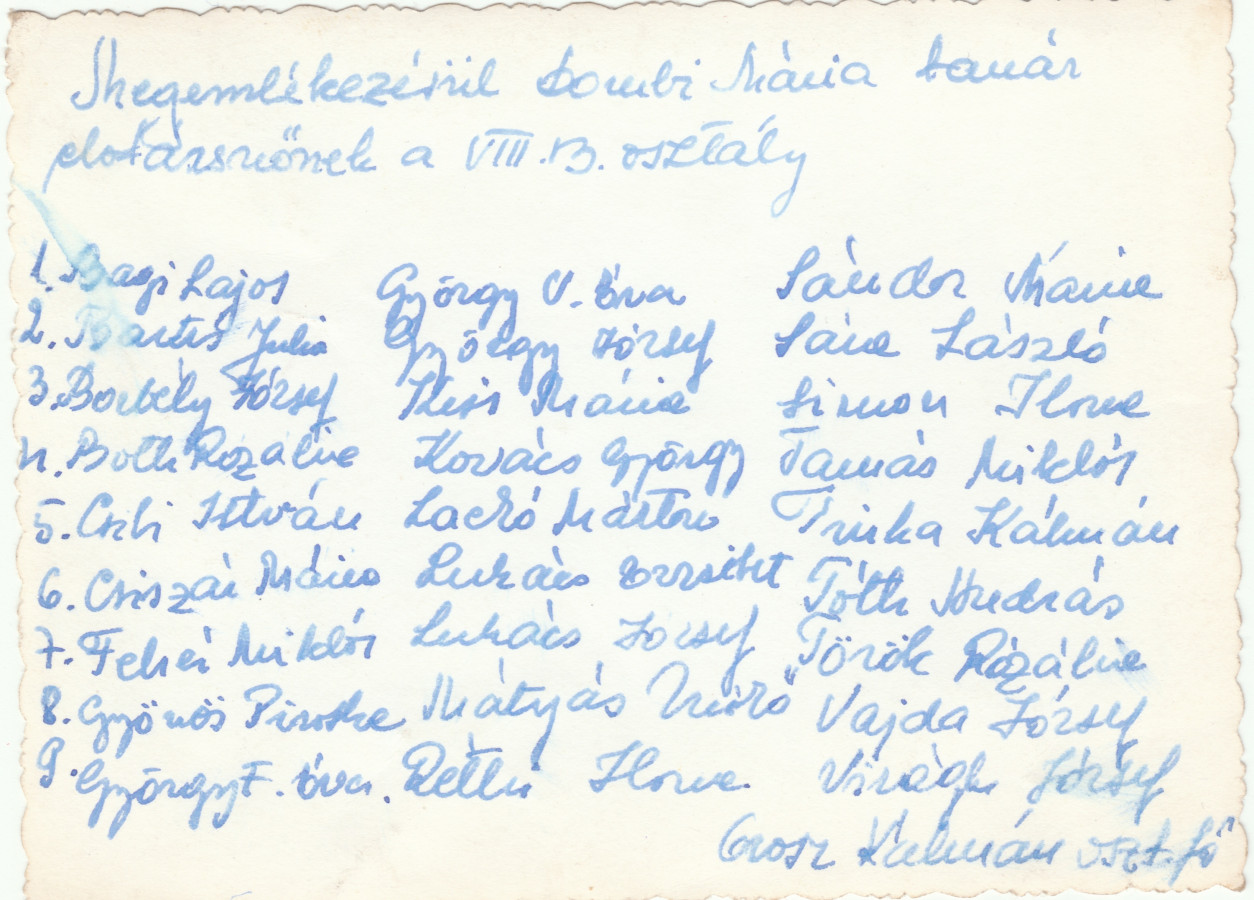 Megemlékezésül Dombi Mária tanár
elvtársnőnek a VIII.B. osztály
1. Bagi Lajos György V. Éva Sándor Mária
2. Bartis Julia György József Sára László
3. Borbély József Kiss Mária Simon Ilona
4. Both Rozália Kovács György Tamás Miklós
5. Csibi István Laczó Márton Trinka Kálmán
6. Csiszár Mária Lukács Erzsébet Tóth András
7. Fehér Miklós Lukács József Török Rozália
8. Gyönös Piroska Mátyás Vajda József
9. György F. Éva. Ilona Virágh József
Grosz Kálmán oszt.fő